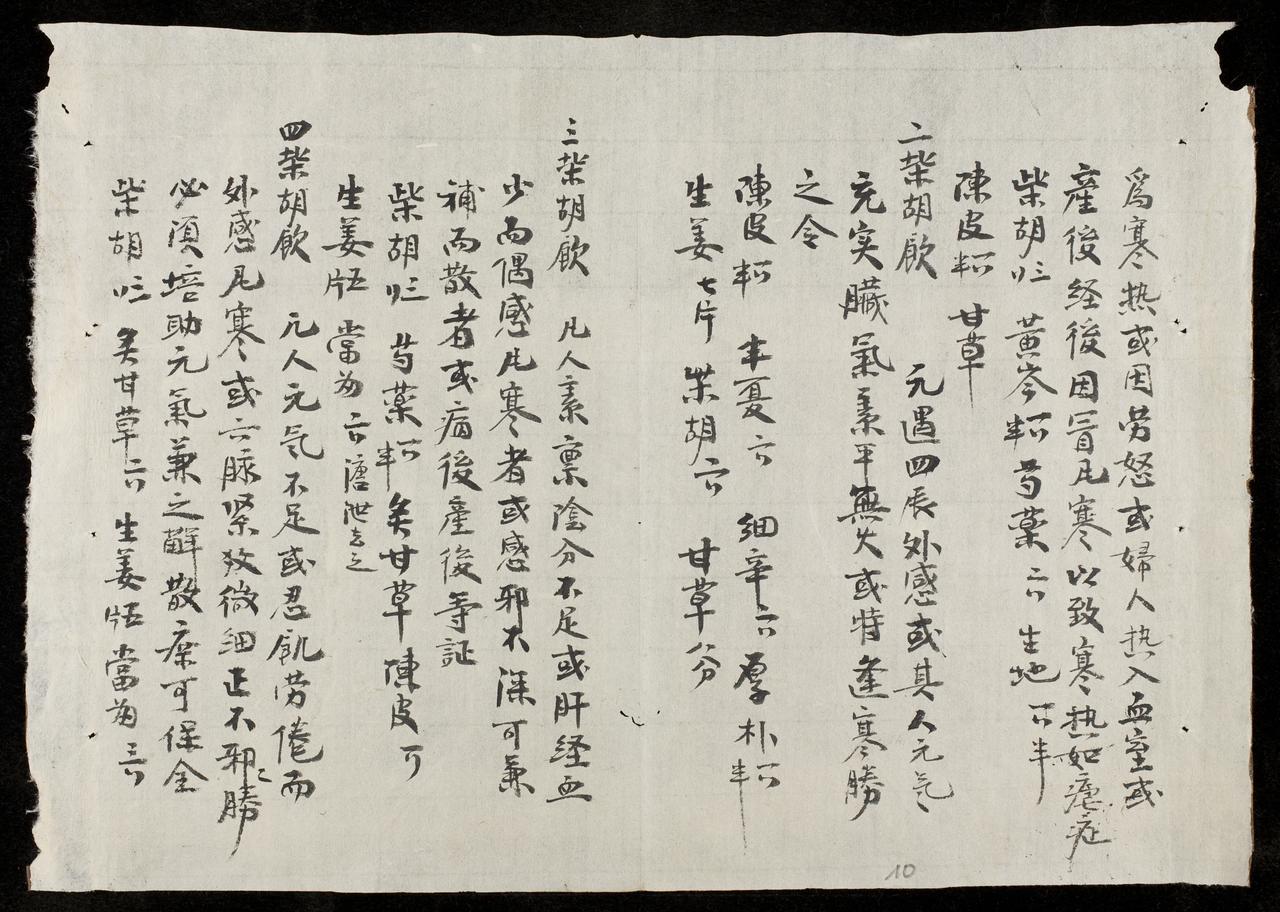 為寒热或因劳怒或婦人热入血室或
産後経後因冒凡寒以致寒热如瘧症
柴胡 黃岑 芍薬 生地
陳皮 甘草
二柴胡飲 元遇四辰外感或其人元气
充实臓氣素平無火或特逢寒勝
之令
陳皮 半夏 細辛 厚朴
生姜七片 柴胡 甘草
三柴胡飲 凡人素禀陰分不足或肝経血
少而偶感凡寒者或感邪不深可兼
補而散者或病後産後等証
柴胡 芍薬 炙甘草 陳皮
生姜 當𱺵 溏泄去之
四柴胡飲 凢人元气不足或忍飢劳倦而
外感凡寒或六脉紧 微細正不邪勝
必須培助元氣兼之 散庶可保全
柴胡 炙甘草 生姜 當
10